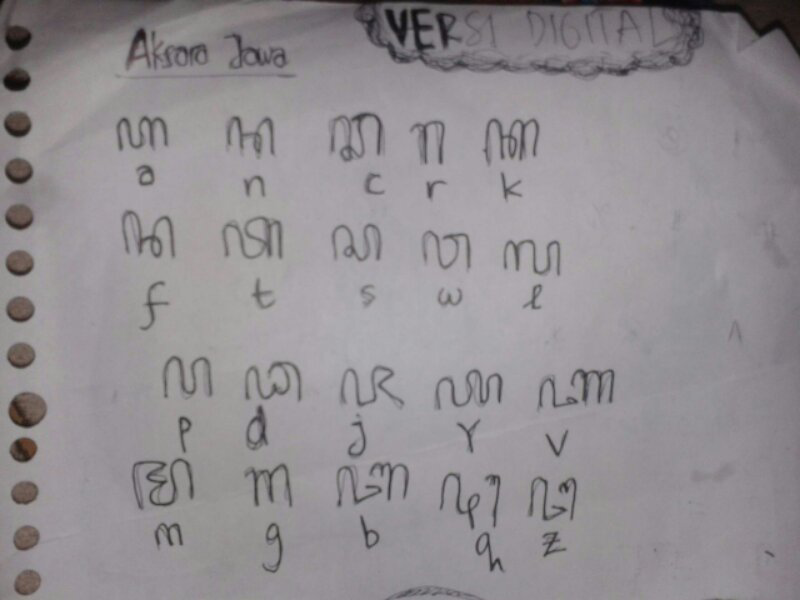 Aksara Jawa VERSI DIGITAL
ꦲ ꦤ ꦕ ꦫ ꦏ
a n c r k
ꦢ ꦠ ꦱ ꦮ ꦭ
f t s w l
ꦥ ꦝ ꦗ ꦪ ꦚ
p d j Y v
ꦩ ꦒ ꦧ ꦛ ꦔ
m g b q z